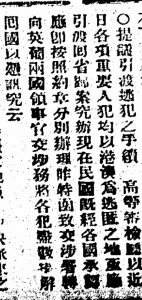 ○提議引渡逃犯之手續　高等審檢廳以近
日各項要入犯均以港澳爲逃匿之地亟應
引渡囘省歸案究辦現在民國既經各國承認
應卽按照約章分別辦理昨特函致交涉署轉
向英葡兩國領事官交涉務將各犯
囘國以憑訊究云